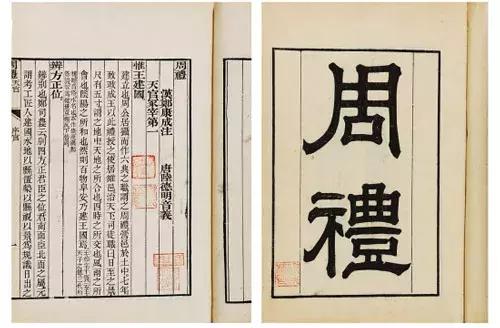 周禮
周禮
天官冢宰第一
漢鄭康成注　唐陸德明音義
惟王建國
建立也周公居攝而作六典之職謂之周禮營邑於土中七年
致政成王以此禮授之使居雒邑治天下司徒職曰日至之景
尺有五寸謂之地中天地之所合也四時之所交也風雨之所
會也陰陽之所和也然則百物阜安乃建王國焉
辨方正位
辨別也鄭司農云別四方正君臣之位君南面臣北面之屬元
謂考工匠人建國水地以縣置槷以縣眡以景爲規識日出之
周禮
天官